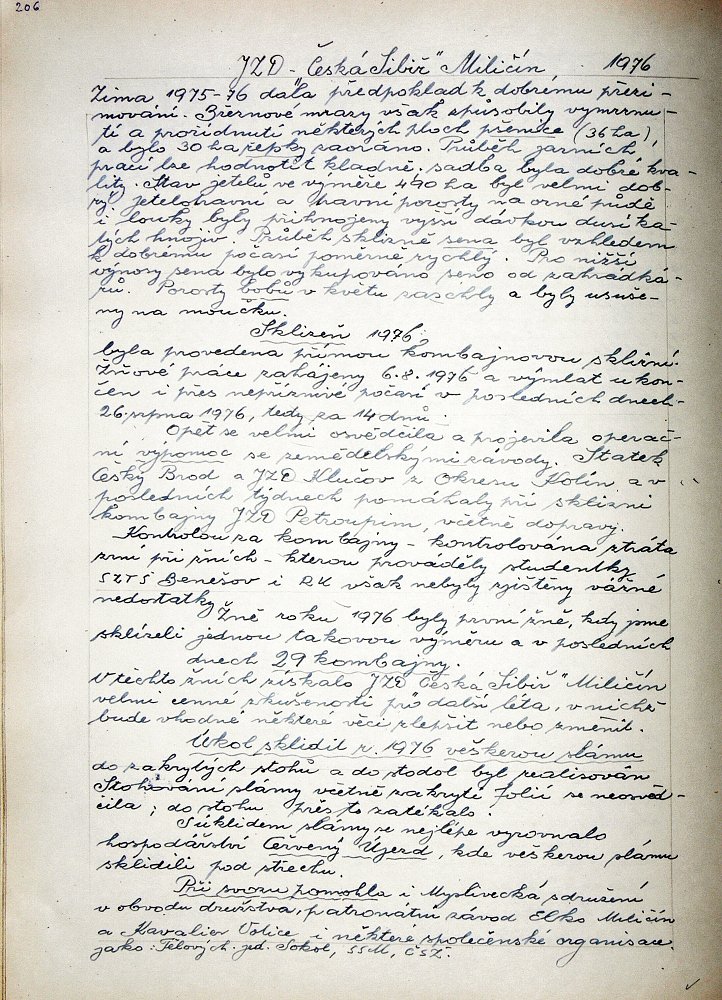 206
JZD - "Česká Sibiř" Miličín 1976
Zima 1975-76 dala předpoklad k dobrému přezi-
mování. Březnové mrazy však způsobily vymrznu-
tí a prořídnutí některých ploch pšenice (36 ha),
a bylo 30 ha řepky zaoráno. Průběh jarních
prací lze hodnotit kladně, sadba byla dobré kva-
lity. Stav jetelů ve výměře 440 ha byl velmi dob-
rý, jetelotravní a travní porosty na orné půdě
i louky byly přihnojeny vyšší dávkou dusíka-
tých hnojiv. Průběh sklizně sena byl vzhledem
k dobrému počasí poměrně rychlý. Pro nižší
výnosy sena bylo vykupováno seno od zahrádká-
řů. Porosty bobů v květu zaschly a byly usuše-
ny na moučku.
Sklizeň 1976,
byla provedena přímou kombajnovou sklizní.
Žňové práce zahájeny 6.8.1976 a výmlat ukon-
čen i přes nepříznivé počasí v posledních dnech
26. srpna 1976, tedy za 14 dnů.
Opět se velmi osvědčila a projevila operač-
ní výpomoc se zemědělskými závody. Statek
Český Brod a JZD Klučov z Okresu Kolín a v
posledních týdnech pomáhaly při sklizni
kombajny JZD Petroupim, včetně dopravy.
Kontrolou za kombajny - kontrolována ztráta
zrní při žních - kterou prováděly studentky
SZTŠ Benešov i RK však nebyly zjištěny vážné
nedostatky
Žně roku 1976 byly první žně, kdy jsme
sklízeli jednou takovou výměru a v posledních
dnech 29 kombajny.
V těchto žních získalo JZD "Česká Sibiř" Miličín
velmi cenné zkušenosti pro další léta, v nichž
bude vhodné některé věci zlepšit nebo změnit.
Úkol sklidit r. 1976 veškerou slámu
do zakrytých stohů a do stodol byl realisován
Stohování slámy včetně zakrytí folií se neosvěd-
čila; do stohu přes to zatékalo.
S úklidem slámy se nejlépe vyrovnalo
hospodářství Červený Újezd, kde veškerou slámu
sklidili pod střechu.
Při svozu pomohla i Myslivecká sdružení
v obvodu družstva, patronátní závod Elko Miličín
a Kavalier Votice i některé společenské organisace
jako: Tělových. jed. Sokol, SSM, ČSŽ.